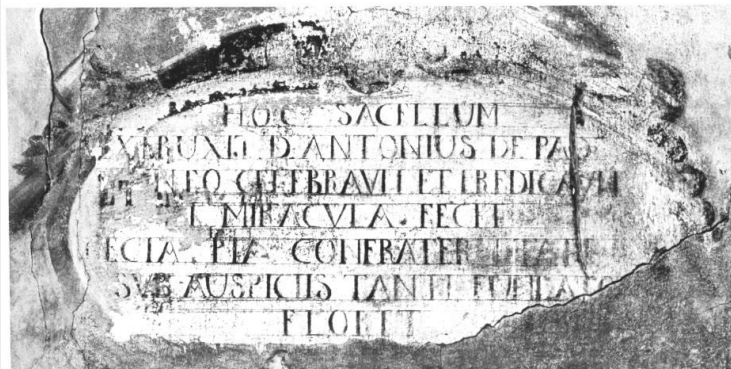 HOC SACELLUM
EXTRUXIT D. ANTONIUS DE PAD
ET IN EO CELEBRAVIT ET PREDICAVIT
E MIRACVLA FECIT
ECTA PIA CONFRATER
SVB AUSPICIIS TANTI FUNDATO
FLORET